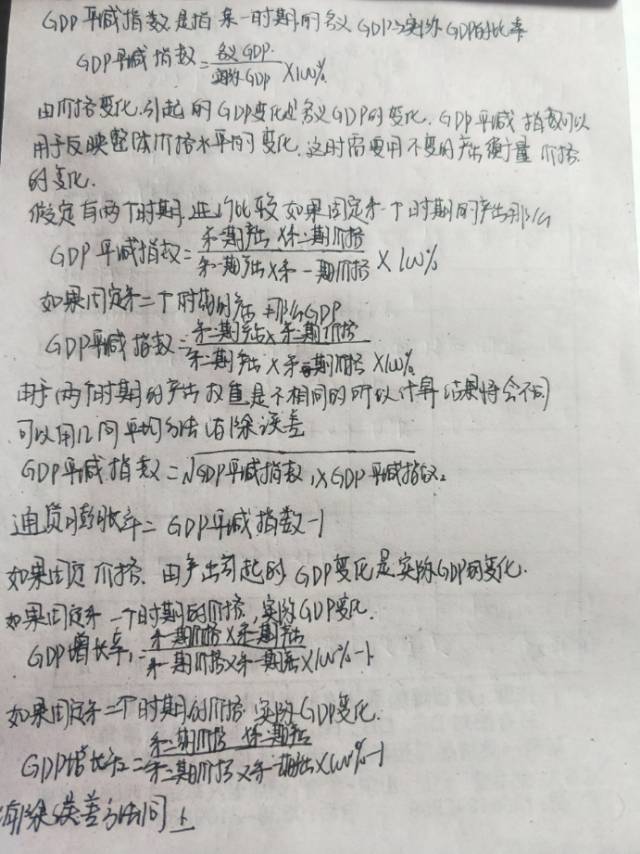 GDP平减指数是指某一时期的名义GDP与实际GDP的比率
GDP平减指数=名义GDP/实际GDP×100%
由价格变化引起的GDP变化是名义GDP的变化.GDP平减指数可以
用于反映整体价格水平的变化.这时需要用不变的产出衡量价格
的变化.
假定有两个时期,进行比较如果固定第一个时期的产出那么
GDP平减指数=第一期产出×第二期价格/第一期产出×第一期价格×100%
如果固定第二个时期的产出那么GDP
GDP平减指数=第二期产出×第二期价格/第二期产出×第一期价格×100%
由于两个时期的产出权值是不相同的所以计算结果将会不同
可以用几何平均方法消除误差
GDP平减指数=√GDP平减指数₁×GDP平减指数₂
通货膨胀率=GDP平减指数-1
如果固定价格.由产出引起的GDP变化是实际GDP的变化.
如果固定第一个时期的价格,实际GDP变化.
GDP增长率₁=第一期价格×第二期产出/第一期价格×第一期产出×100%-1
如果固定第二个时期的价格 实际GDP变化.
GDP增长率₂=第二期价格×第二期产出/第二期价格×第一期产出×100%-1
消除误差方法同上